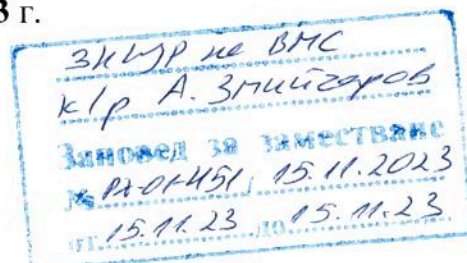 3 г.
ЗНЩР на ВМС
к/р А. Змийчаров
Заповед за заместване
№ РД-01-451, 15.11.2023
от 15.11.23 до 15.11.23